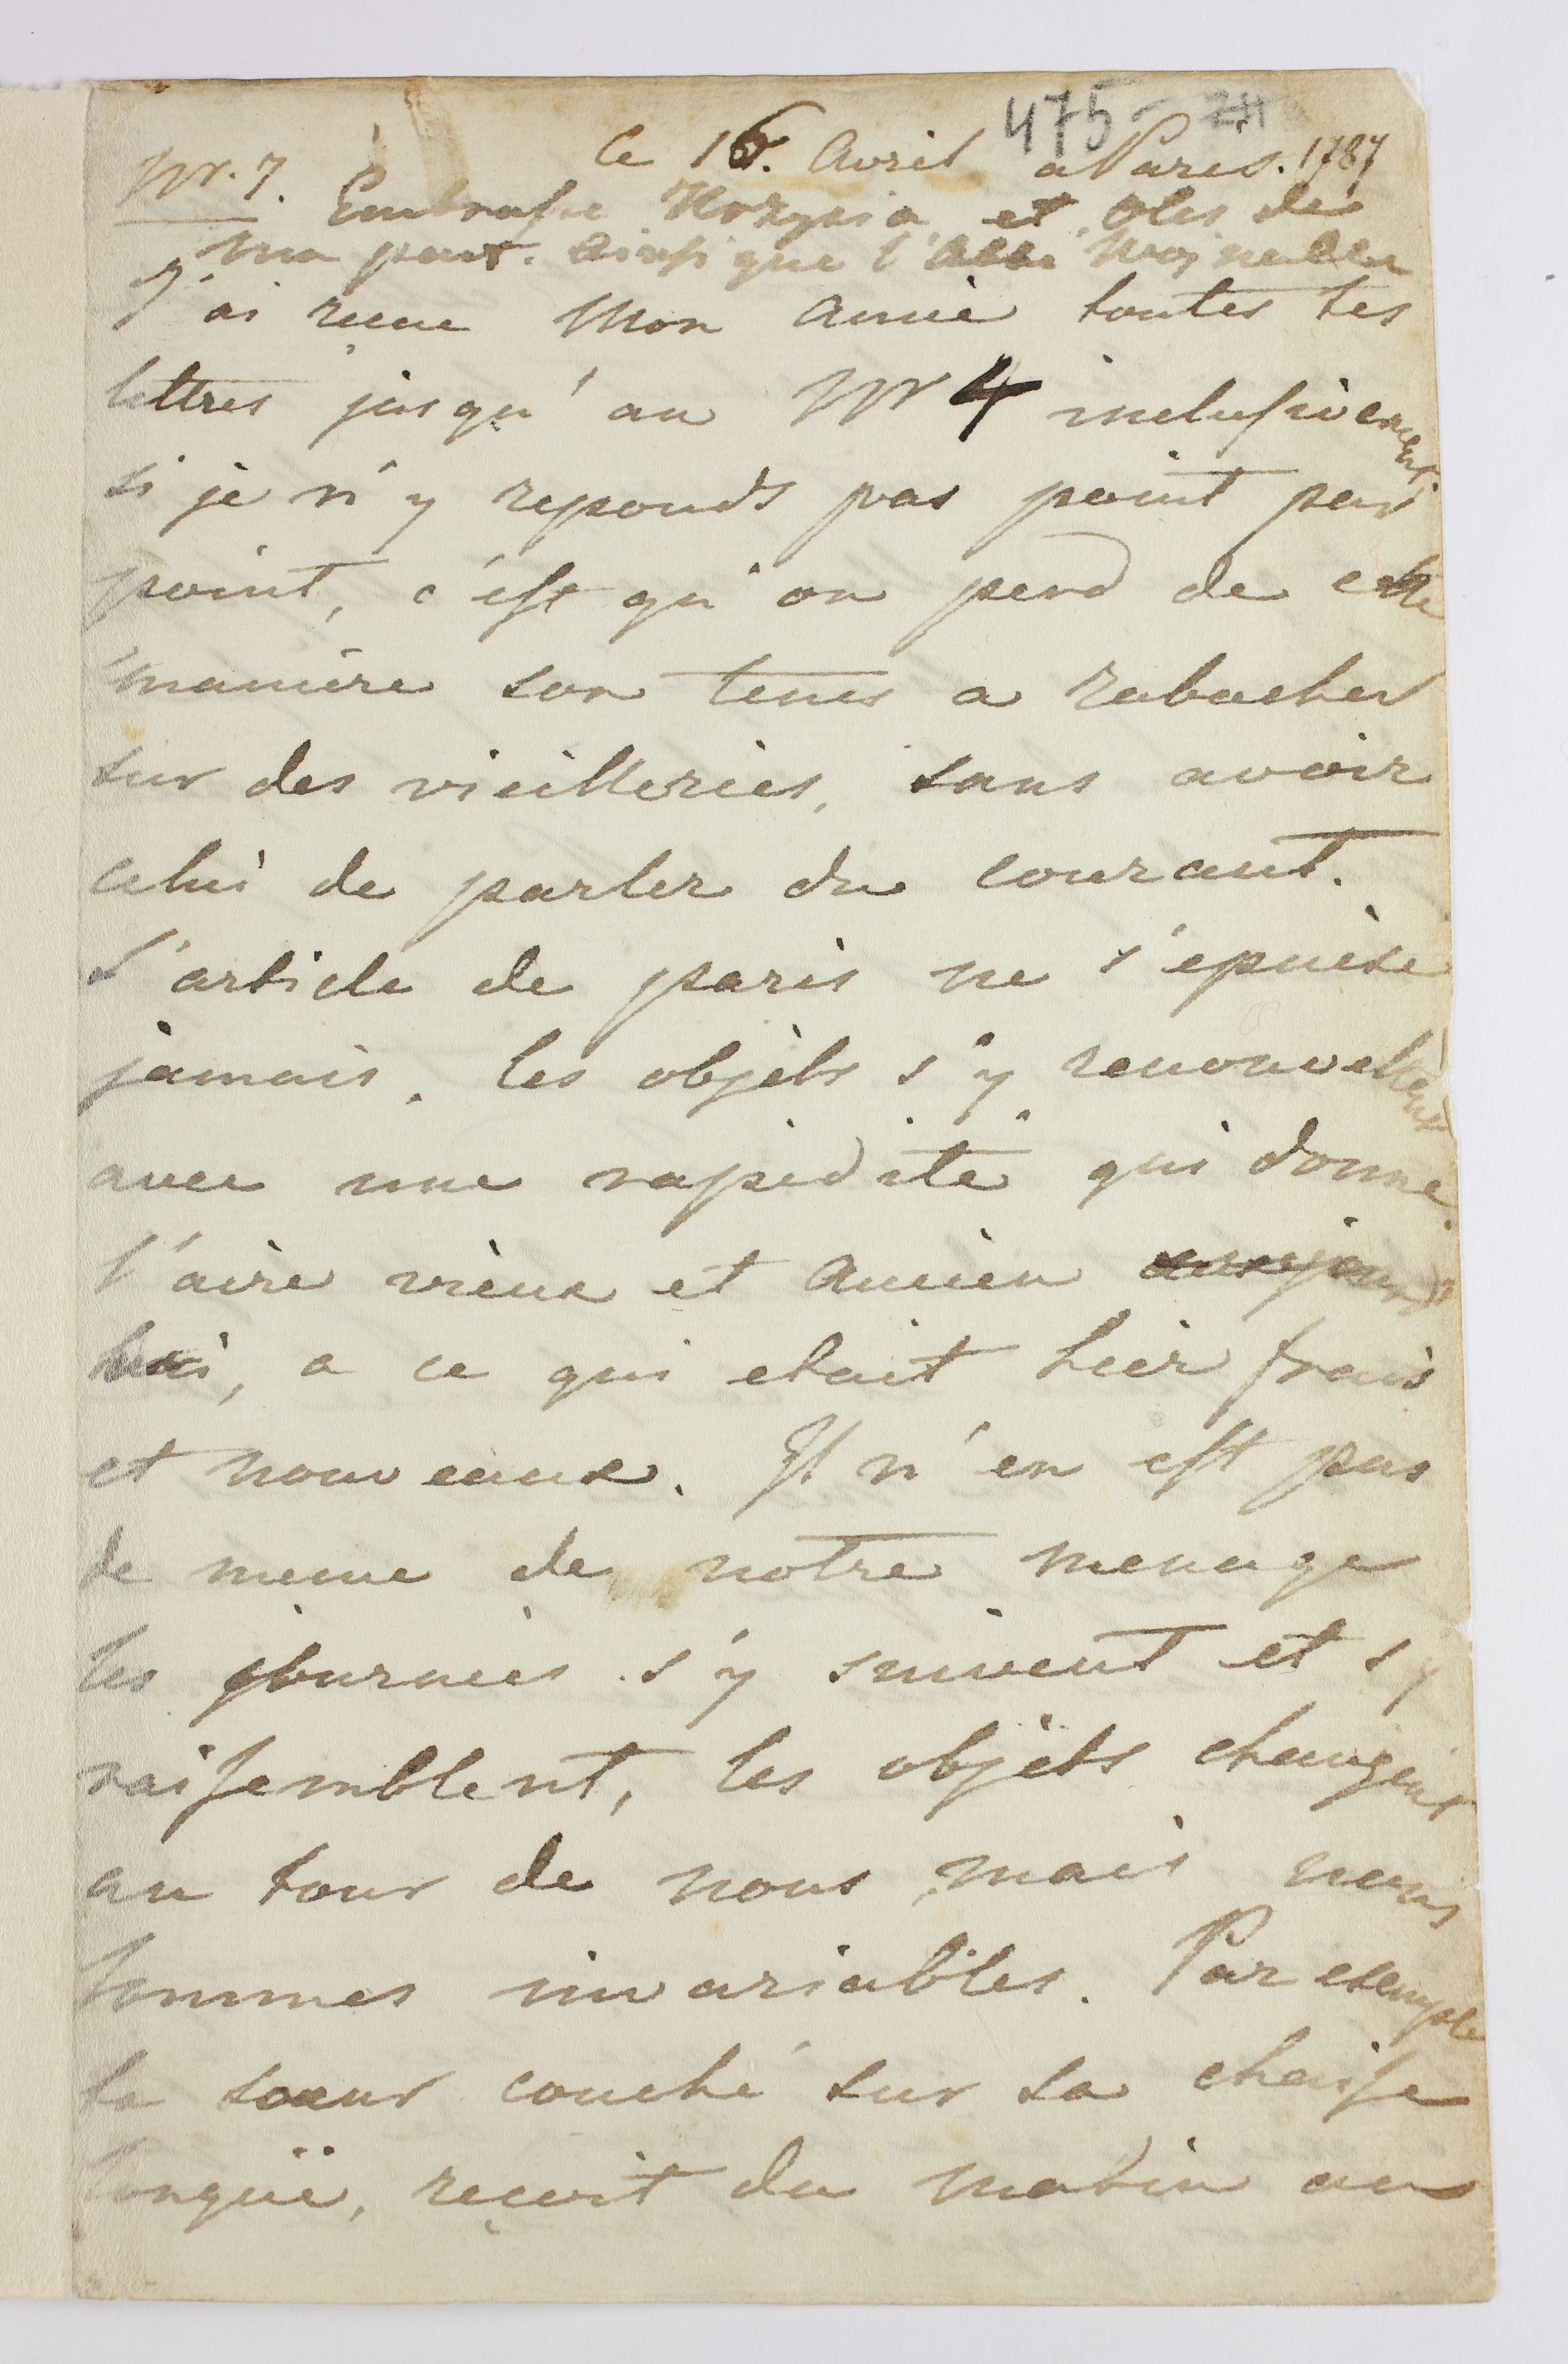 475
ce 16. Avril a Paris. 1787
Nr. 7. Embrasse et Oles de
ma part. ainsi que l'Abbé
J'ai reçue Mon Amie toutes tes
lettres jusqu'au Nr 4 inclusivement.
si je n'y reponds pas point par
point, c'est qu'on perd de cette
maniere son tems a rabacher
sur des vieilleries, sans avoir
celui de parler du courant.
L'article de paris ne s'epuise
jamais. les objèts s'y renouvellent
avec une rapidité qui donne
l'aire vieux et Ancien aujourd'
hui, a ce qui etait hier frais
et nouveaux. Il n'en est pas
de meme de notre menage
les journees s'y suivent et s'y
raisemblent, les objèts changent
au tour de nous mais nous
sommes invariables. Par exemple
ta soeur couché sur sa chaise
longüe, reçoit du matin au